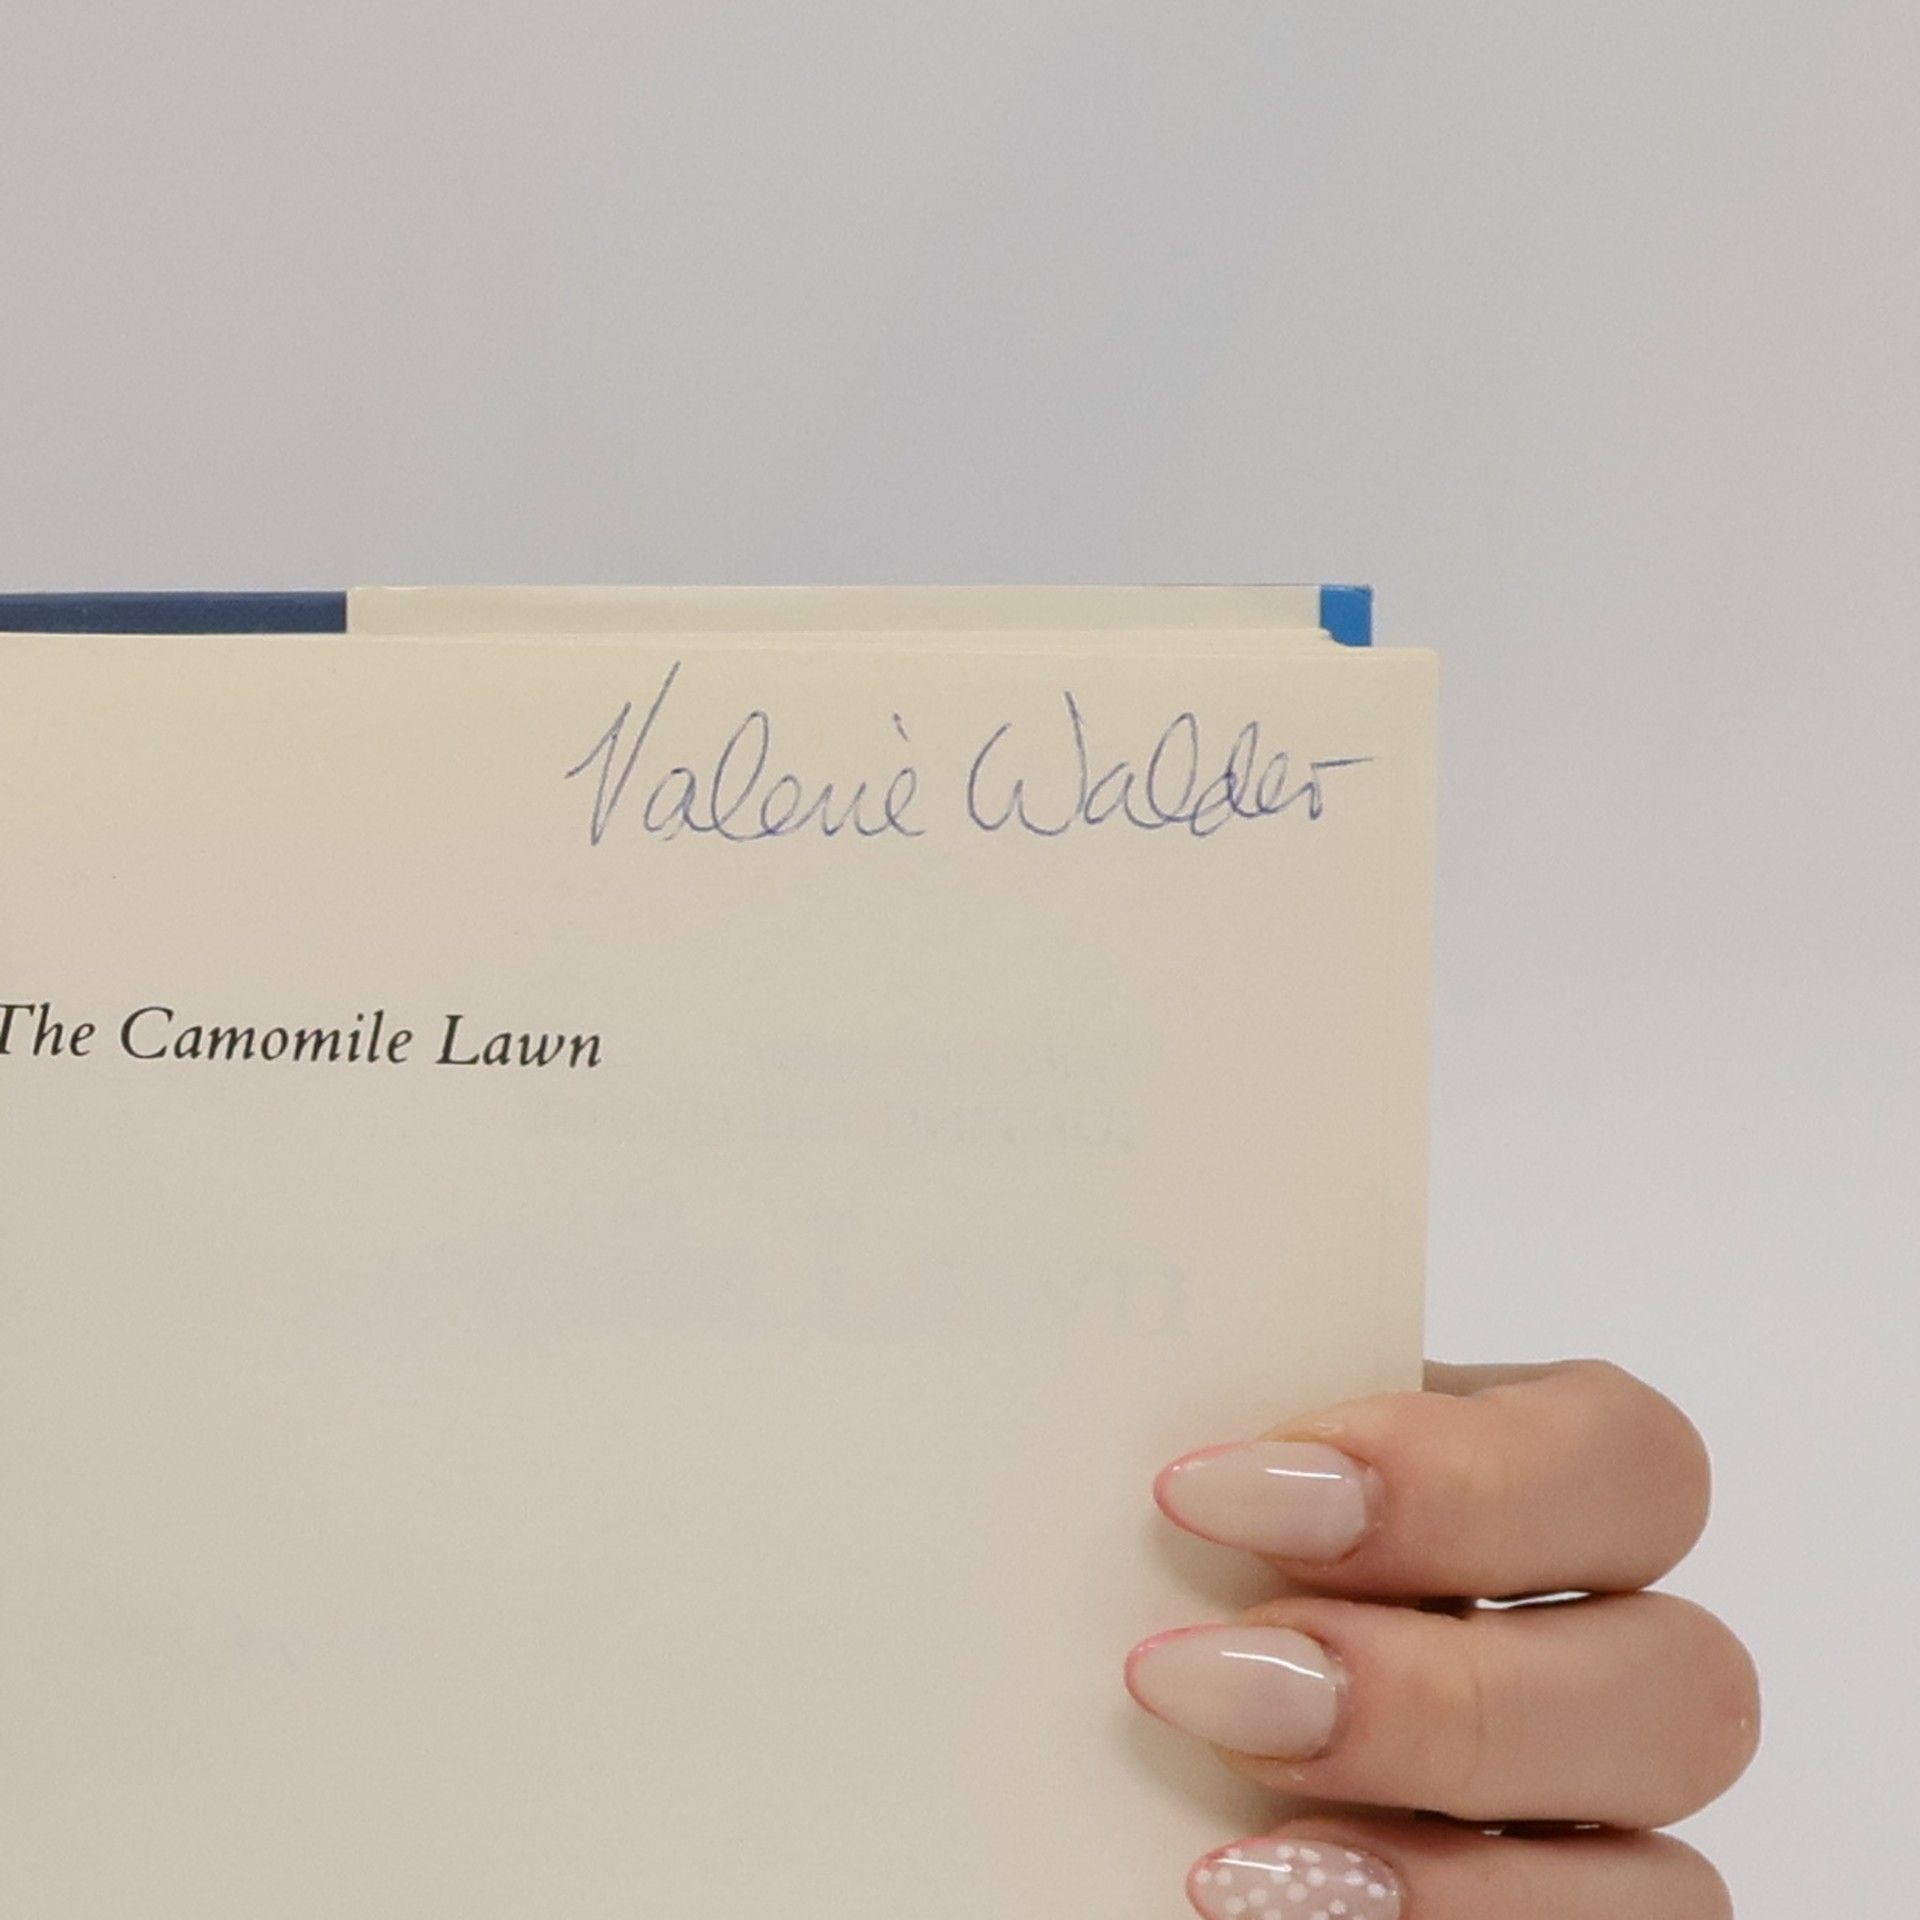 Valerie Walder
The Camomile Lawn